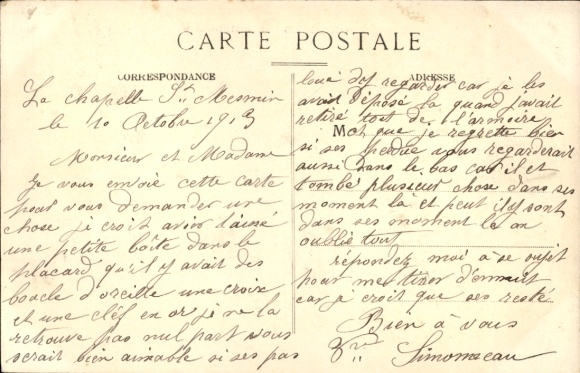 CARTE POSTALE
CORRESPONDANCE
La chapelle St Mesmin
le 10 Octobre 1913
Monsieur et Madame
Je vous envoie cette carte
pour vous demander une
chose, je croit avoir laissé
une petite boîte dans le
placard qu'il y avait des
boucle d'oreille une croix
et une clef en or je ne la
retrouve pas nul part vous
serait bien aimable si ses pas
ADRESSE
loué d'y regarder car je les
avait déposé la quand j'avait
retiré tout de l'armoire
M
chose que je regrette bien
si ses perdue vous regarderait
aussi dans le bas car il et
tombé plusieur chose dans ses
moment là et peut ily sont
dans ses moment le on
oublie tout
répondez moi à se sujet
pour me tirer d'ennuit
car je croit que ses resté
Bien à vous
Simonneau